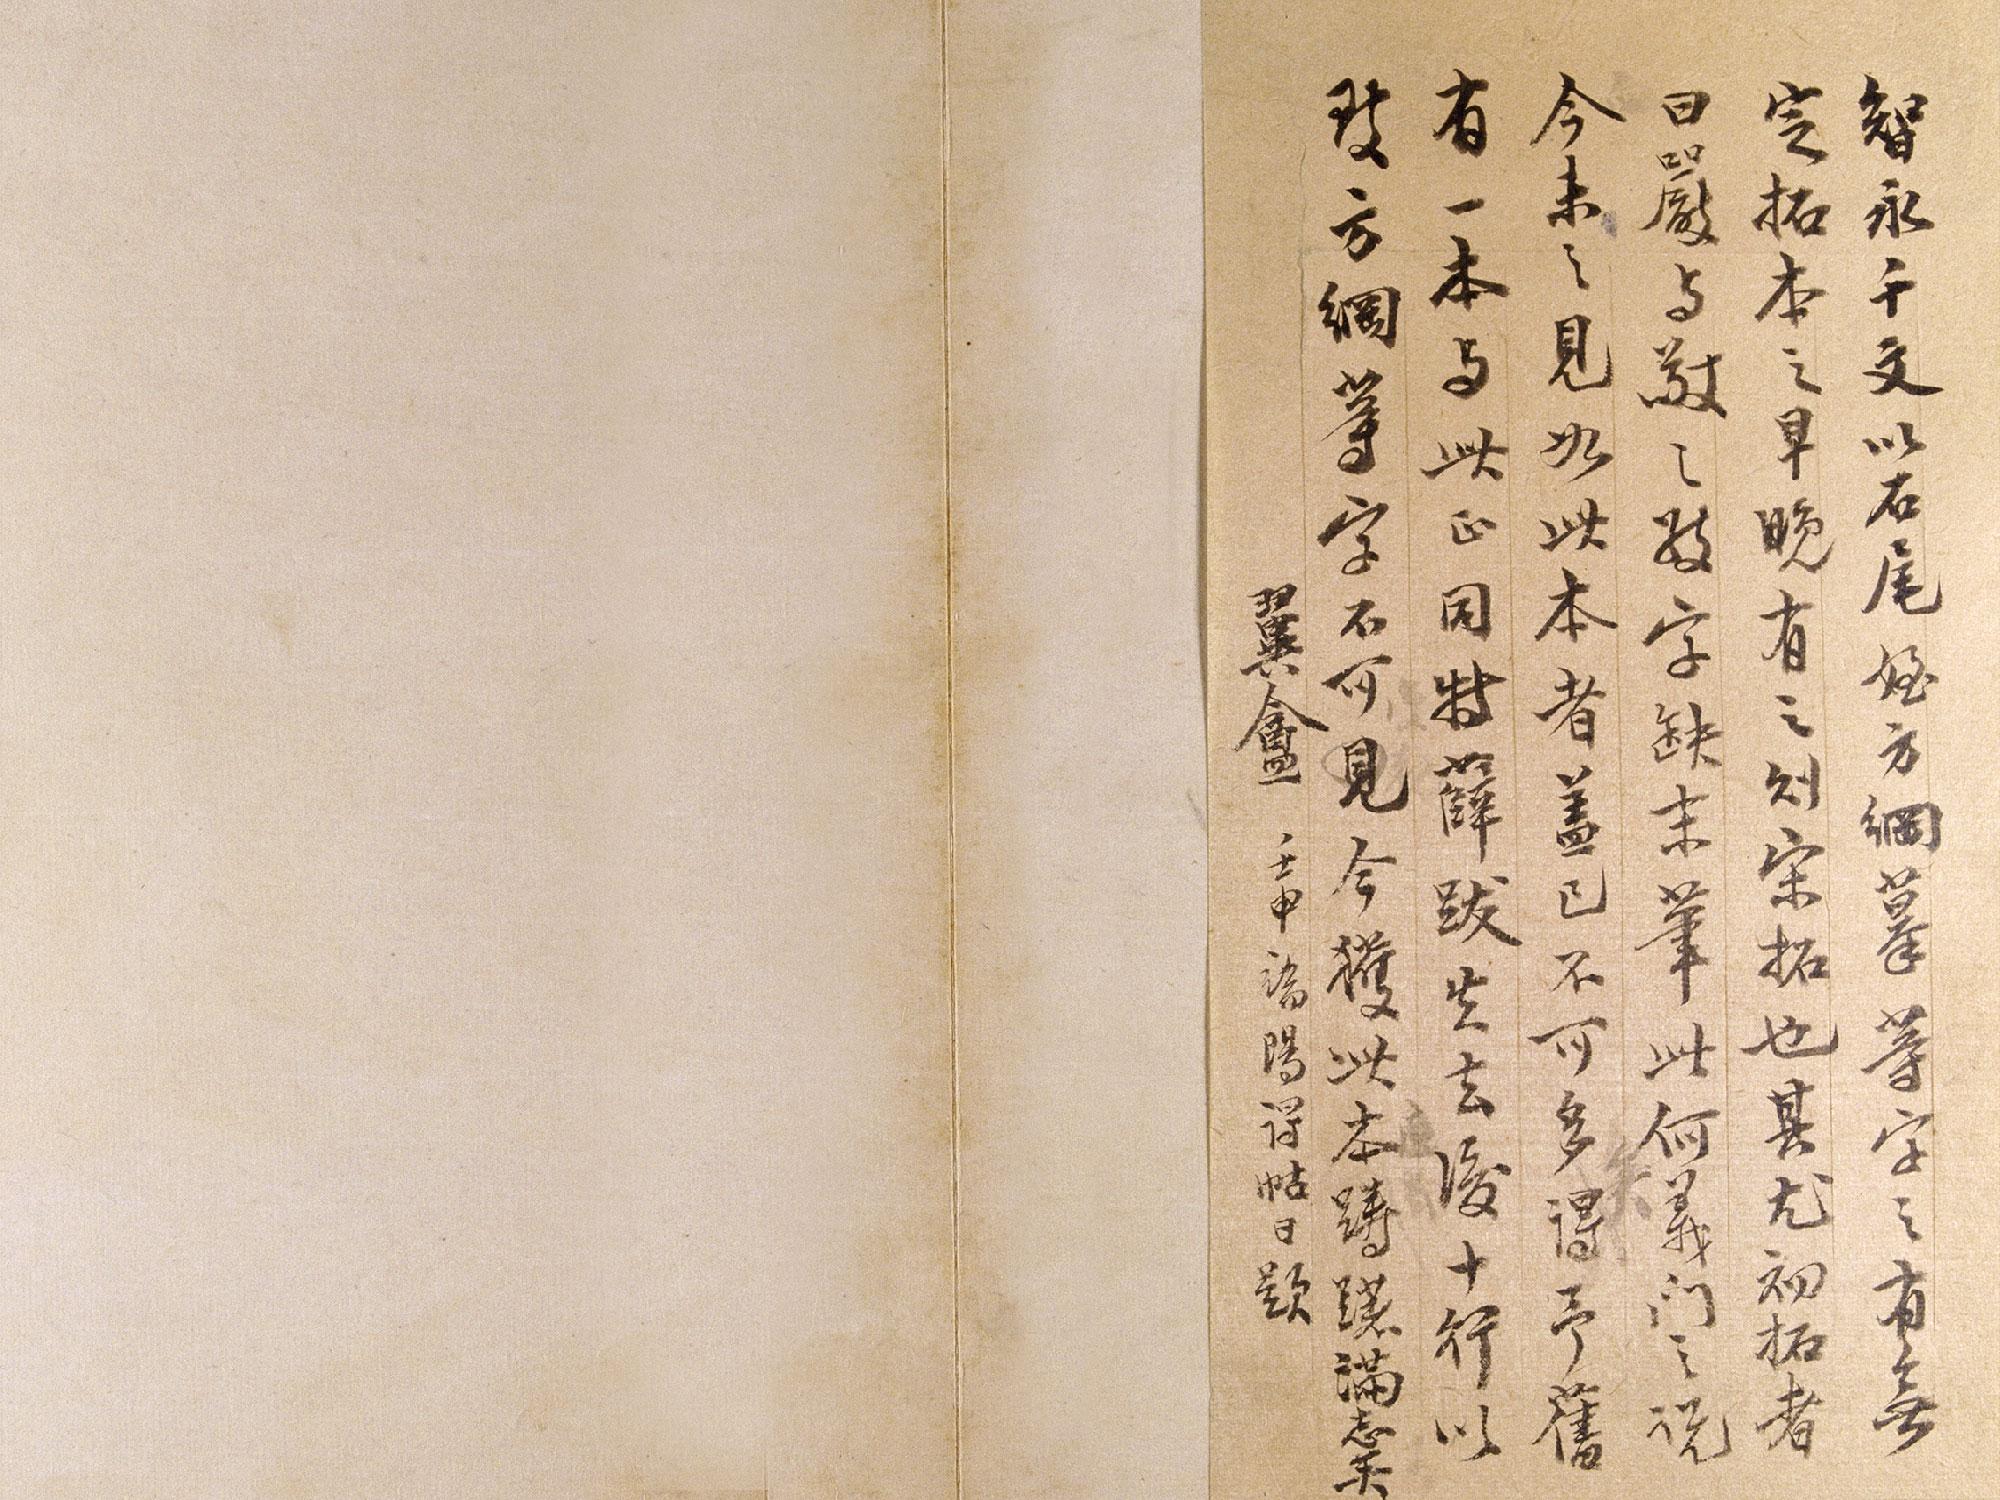 智永千文以石尾姪方綱摹等字之有無
定拓本之早晚有之則宋拓也其尤初拓者
曰嚴与敬之敬字缺末筆此何義門之说
今未之見如此本者盖已不可多得予舊
有一本与此正同特薛跋失去後十行以
致方綱等字不可見今獲此本躊躇滿志矣
翼盦 壬申端陽得帖日題